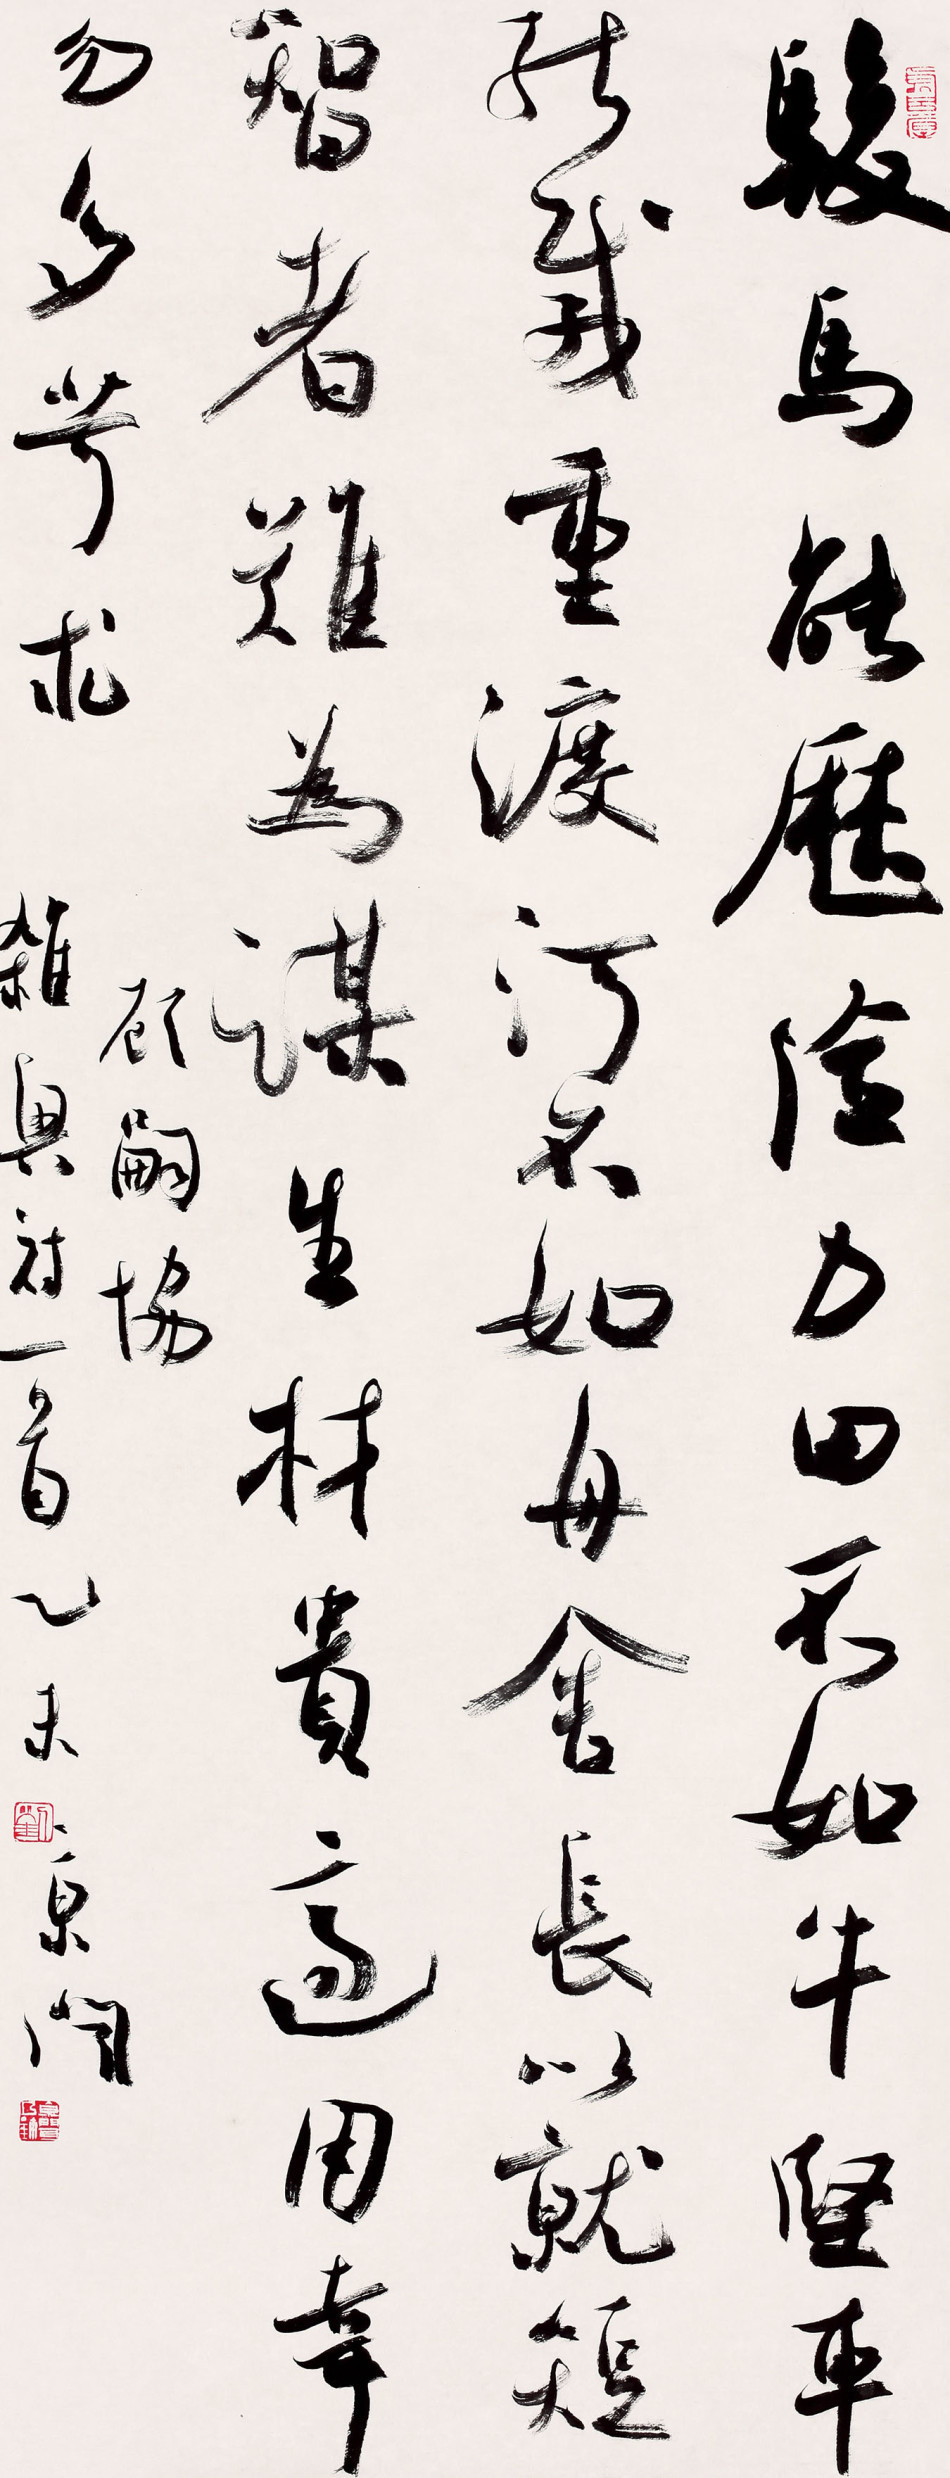 駿馬能歷險力田不如牛堅車
能載重渡河不如舟舍長以就短
智者難為謀生材貴適用幸
勿多苛求
顧嗣協
雜興詩一首乙未京閩